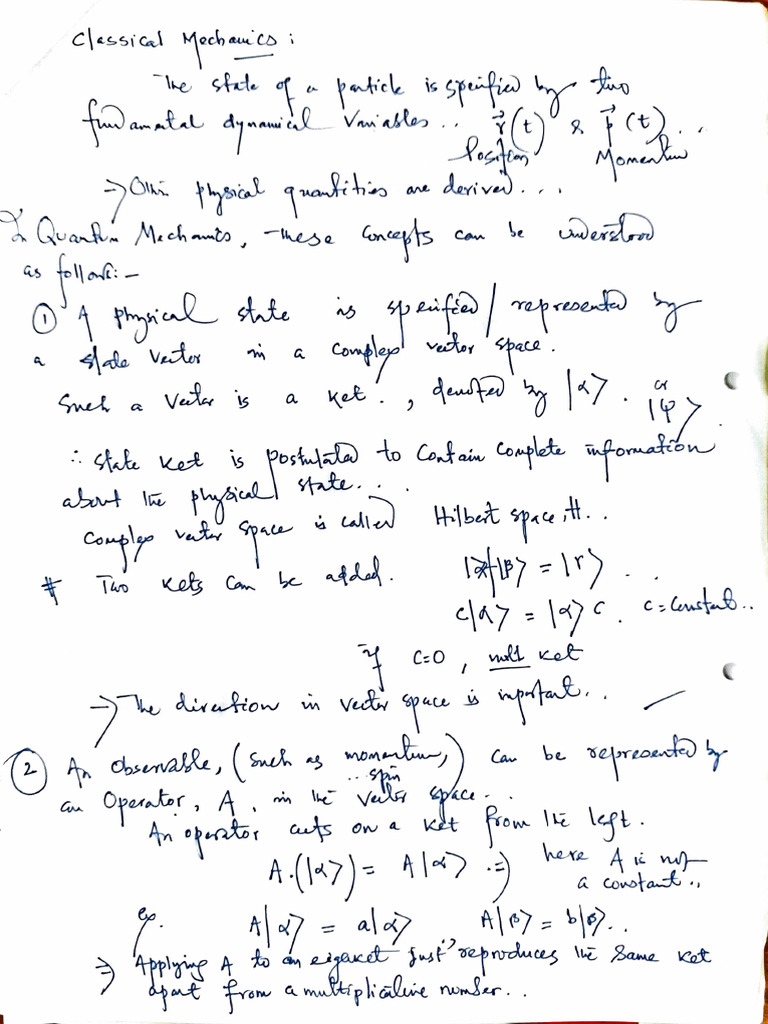 Classical Mechanics :
The state of a particle is specified by two
fundamental dynamical variables .. r⃗(t) & p⃗(t) ...
Position Momentum
⇒ Other physical quantities are derived ...
In Quantum Mechanics, these concepts can be understood
as follows:-
① A physical state is specified / represented by
a state vector in a complex vector space.
Such a vector is a ket , denoted by |α⟩ . or |φ⟩ .
∴ State ket is postulated to contain complete information
about the physical state...
Complex vector space is called Hilbert space, H ..
# Two kets can be added. |α⟩+|β⟩ = |γ⟩ ..
c|α⟩ = |α⟩c . c = constant ..
if c=0 , null ket
→ The direction in vector space is important..
② An observable, (such as momentum,) can be represented by
.. spin
an Operator, A, in the vector space...
An operator acts on a ket from the left.
A.(|α⟩) = A|α⟩ .⇒ here A is not
a constant..
ex. A|α⟩ = a|α⟩ A|β⟩ = b|β⟩..
⇒ Applying A to an eigeket just reproduces the same ket
apart from a multiplicative number...